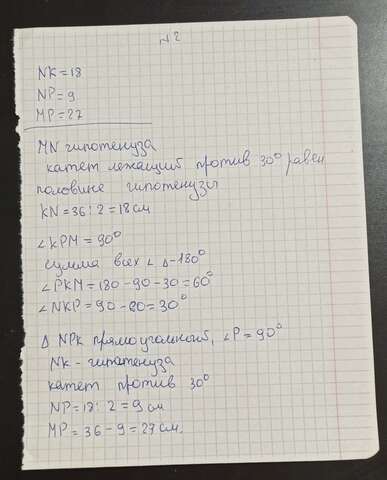 N2
NK = 18
NP = 9
MP = 27
MN гипотенуза
катет лежащий против 30° равен
половине гипотенузы
KN = 36 : 2 = 18 см
∠KPM = 90°
сумма всех ∠ Δ - 180°
∠PKM = 180 - 90 - 30 = 60°
∠NKP = 90 - 60 = 30°
Δ NPK прямоугольный, ∠P = 90°
NK - гипотенуза
катет против 30°
NP = 18 : 2 = 9 см
MP = 36 - 9 = 27 см.